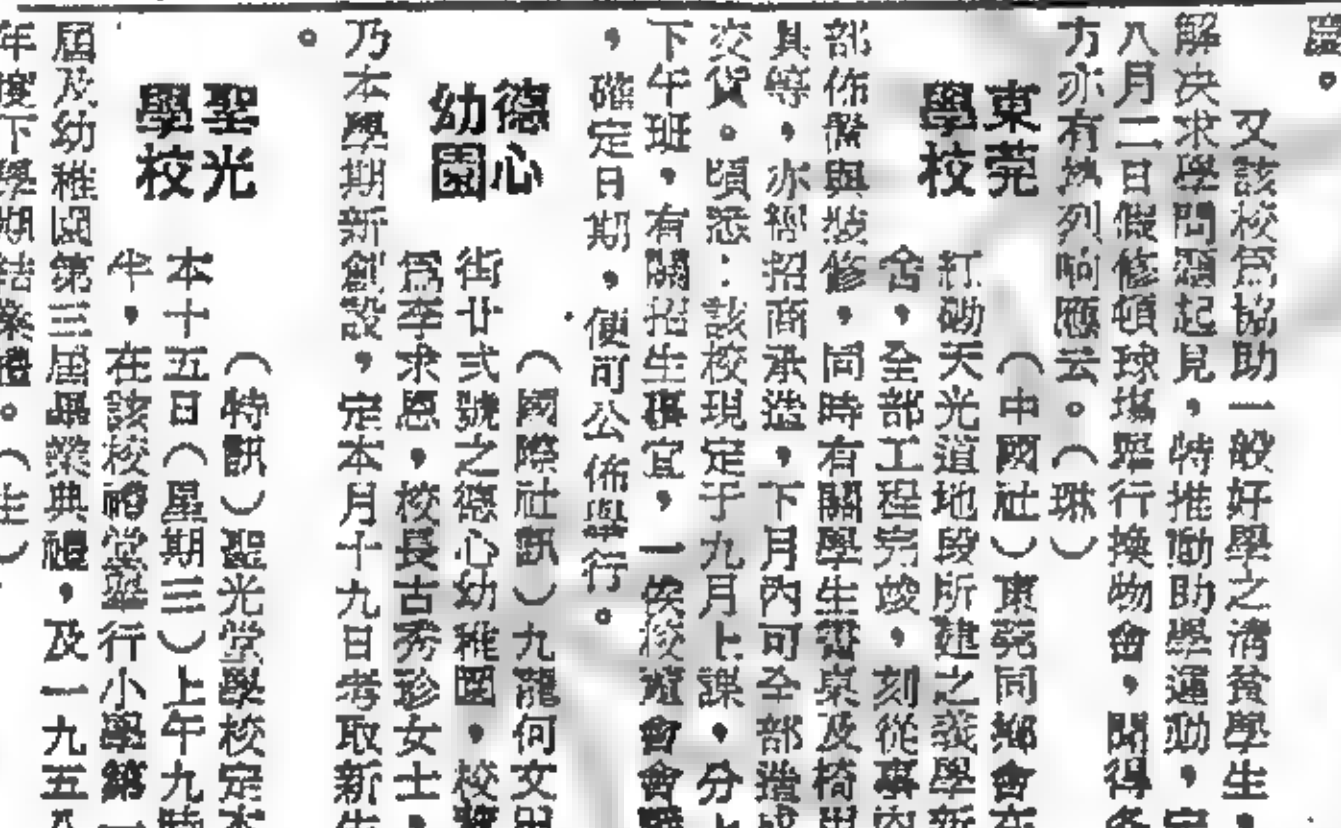 慶。
又該校爲協助一般好學之清貧學生，
解决求學問題起見，特推動助學運動，定
八月二日假修頓球塲舉行換物會，聞得各
方亦有熱列响應云。（琳）
東莞
學校
（中國社）東莞同鄉會在
紅磡天光道地段所建之義學新
舍，全部工程完竣，刻從事內
部佈置與裝修，同時有關學生書桌及椅
具等，亦經招商承造，下月內可全部造成
交貨。頃悉：該校現定于九月上課，分上
下午班，有關招生事宜，一俟校董會會
，確定日期，便可公佈舉行。
德心
幼園
（國際社訊）九龍何文田
街廿弍號之德心幼稚園，校
爲李求恩，校長古秀珍女士，
乃本學期新創設，定本月十九日考取新生
。
聖光
學校
（特訊）聖光堂學校定本
本十五日（星期三）上午九時
半，在該校禮堂舉行小學第一
屆及幼稚園第三屆畢業典禮，及一九五
年度下學期結業禮。（生）